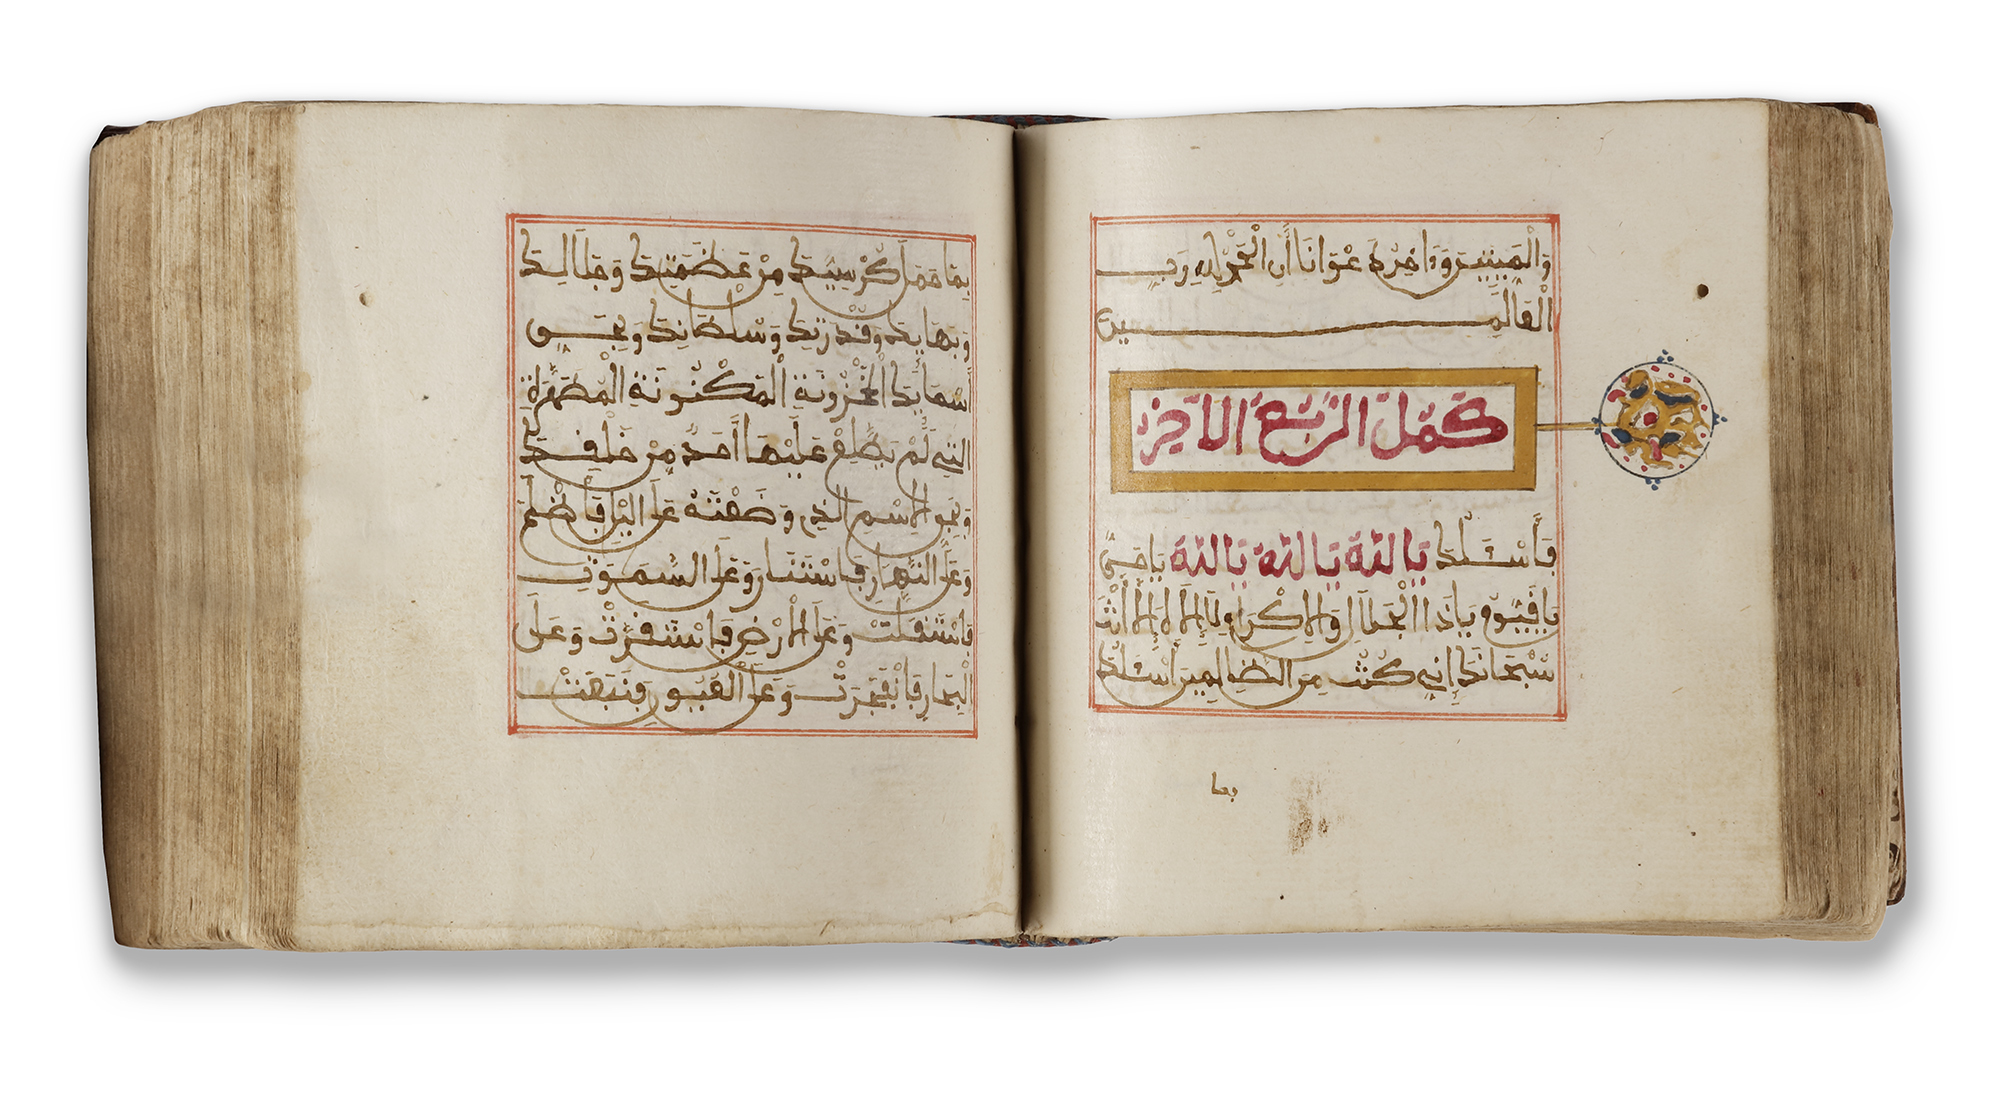 وَالْمَيِّتِينَ وَءَاخِرُ دَعْوَانَا أَنِ الْحَمْدُ لِلهِ رَبِّ
الْعَالَمِينَ
كَمُلَ الرُّبُعُ الاَخِيرُ
فَأَسْئَلُكَ يَا اللَّهُ يَا اللَّهُ يَا اللَّهُ يَا حَيُّ
يَا قَيُّومُ يَا ذَا الْجَلَالِ وَالْإِكْرَامِ لَا إِلَهَ إِلَّا أَنْتَ
سُبْحَانَكَ إِنِّي كُنْتُ مِنَ الظَّالِمِينَ أَسْئَلُكَ
بما
بِمَا حَمَلَ كُرْسِيُّكَ مِنْ عَظَمَتِكَ وَجَلَالِكَ
وَبَهَائِكَ وَقُدْرَتِكَ وَسُلْطَانِكَ وَبِحَقِّ
أَسْمَائِكَ الْمَخْزُونَةِ الْمَكْنُونَةِ الْمُطَهَّرَةِ
الَّتِي لَمْ يَطَّلِعْ عَلَيْهَا أَحَدٌ مِنْ خَلْقِكَ
وَبِحَقِّ الْإِسْمِ الَّذِي وَضَعْتَهُ عَلَى الَّيْلِ فَأَظْلَمَ
وَعَلَى النَّهَارِ فَاسْتَنَارَ وَعَلَى السَّمَوَاتِ
فَاسْتَقَلَّتْ وَعَلَى الْأَرْضِ فَاسْتَقَرَّتْ وَعَلَى
الْبِحَارِ فَانْفَجَرَتْ وَعَلَى الْعُيُونِ فَنَبَعَتْ